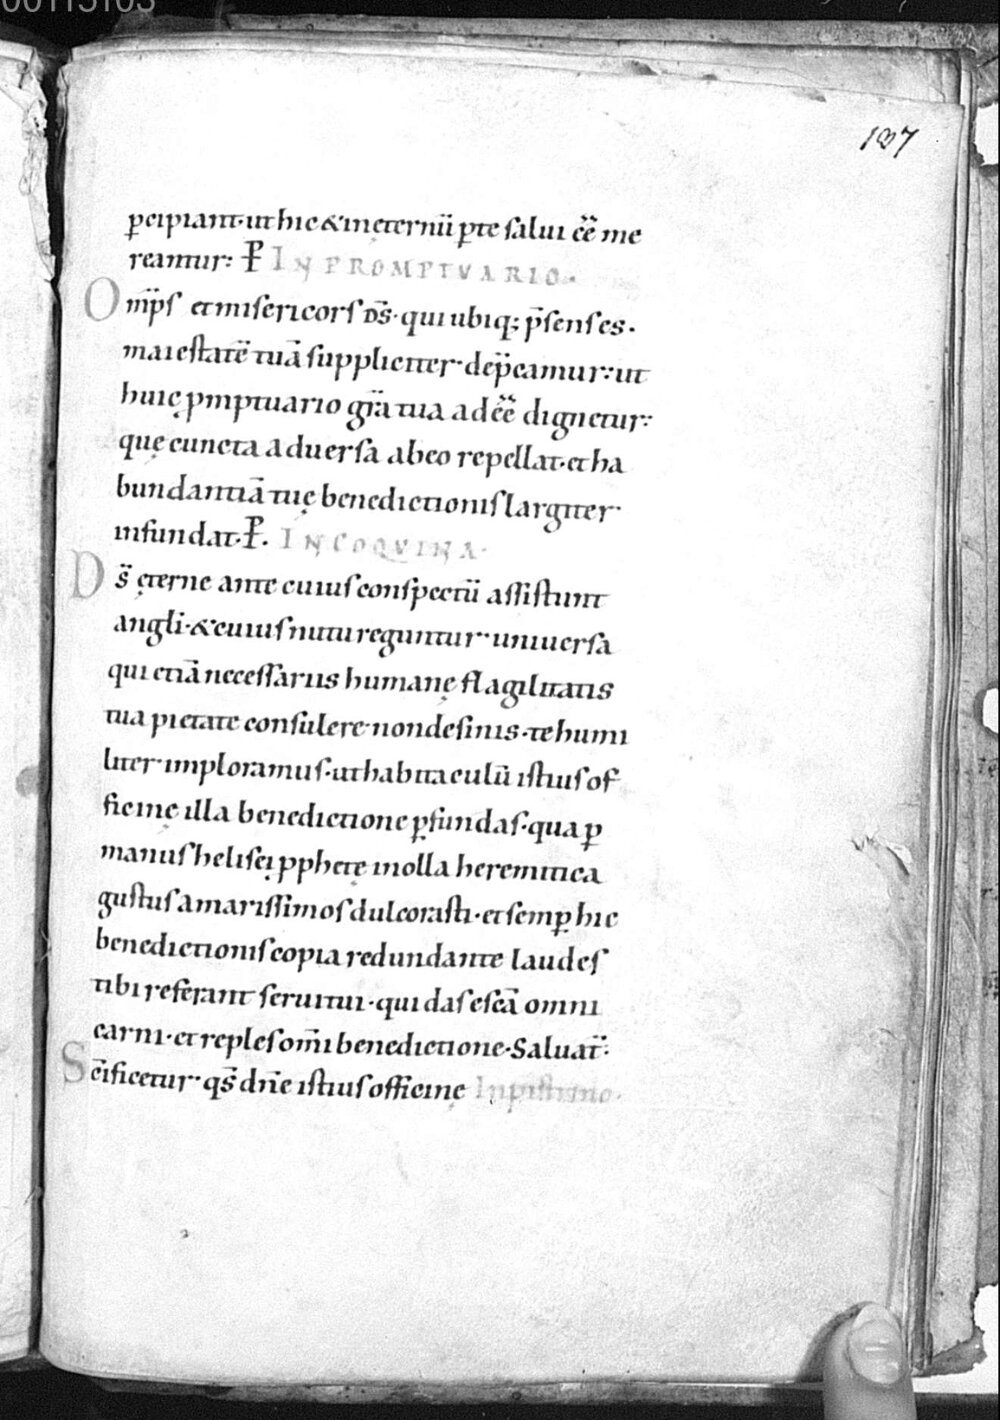 00113103
137
p̲cipiant· ut hic & inęternū p̲te salui cē̄ me
reantur: P̲ IN PROMPTVARIO·
Om̄ps et misericors DS̄· qui ubiq; p̄senses·
maiestatē tuā suppliciter· dep̄camur: ut
huic p̲mptuario gr̄a tua adeē̄ dignetur:
quę cuncta aduersa abeo repellat· et ha
bundantiā tuę benedictionis largiter·
infundat· P̲. IN COQVINA·
DS̄ ęterne ante cuius conspectū assistunt
angli· & cuius nutu reguntur· uniuersa
qui etiā necessariis humanę flagilitatis
tua pietate consulere· non desinis· te humi
liter· imploramus· ut habitaculū istius of
ficinę illa benedictione p̲fundas· qua p̲
manus helisei p̲phetę inolla heremitica
gustus amarissimos dulcorasti· et semp̲ hic
benedictionis copia redundante laudes
tibi referant seruitui· qui das escā omni
carni· et reples om̄i benedictione· Saluat̄:
Sc̄ificetur· qs̄ dn̄e istius officinę Inpistrino·